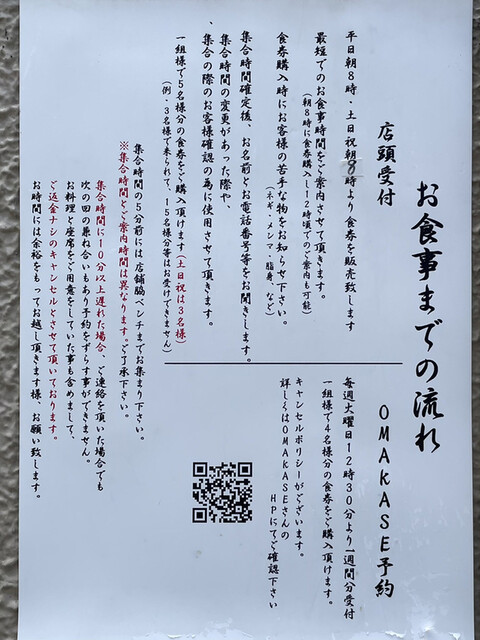 お食事までの流れ
店頭受付
平日朝8時・土日祝朝8時より食券を販売致します
最短でのお食事時間をご案内させて頂きます。
(朝8時に食券購入し11時頃でのご案内も可能)
食券購入時にお客様の苦手な物をお知らせ下さい。
(ネギ、メンマ、脂身、など)
集合時間確定後、お名前とお電話番号等をお聞きします。
集合時間の変更があった際や、
集合の際のお客様確認の為に使用させて頂きます。
一組様で5名様分の食券をご購入頂けます(土日祝は3名様)
(例・3名様で来られて、15名様分等はお受けできません)
集合時間の5分前には店舗脇ベンチまでお集まり下さい。
※集合時間とご案内時間は異なります。ご了承下さい。
集合時間に10分以上遅れた場合、ご連絡を頂いた場合でも
次の回の兼ね合いもあり予約をずらす事ができません。
お料理・座席をご用意をしていた事も含めまして、
ご返金ナシのキャンセルとさせて頂いております。
お時間には余裕をもってお越し頂きます様、お願い致します。
OMAKASE予約
毎週火曜日12時30分より1週間分受付
一組様で4名様分の食券をご購入頂けます。
キャンセルポリシーがございます。
詳しくはOMAKASEさんの
HPにてご確認下さい